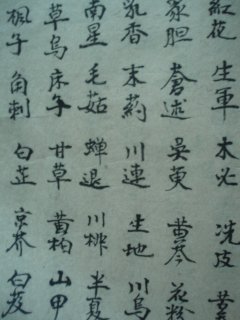 紅花 生軍 木必 皮 苦
豕胆 蒼述 吳萸 黄芩 花粉
乳香 末葯 川連 生地 川烏
南星 毛菇 蝉退 川 半夏
草烏 床子 甘草 黄柏 山甲
楓子 角刺 白芷 京芥 白芨